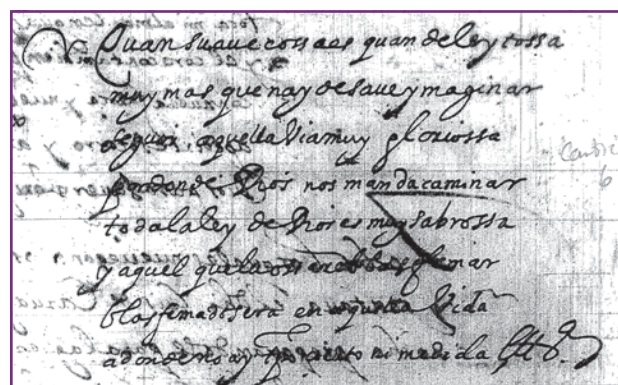 Quan suave cossa es quan deleytossa
muy mas que nay de save ymaginar
seguir aquella via muy gloriossa
por adonde Dios nos manda caminar
toda la ley de Dios es muy sabrossa
y aquel que la ossare blasfemar
blasfemado sera en aquella vida
adonde no ay ni medida
Canti
6